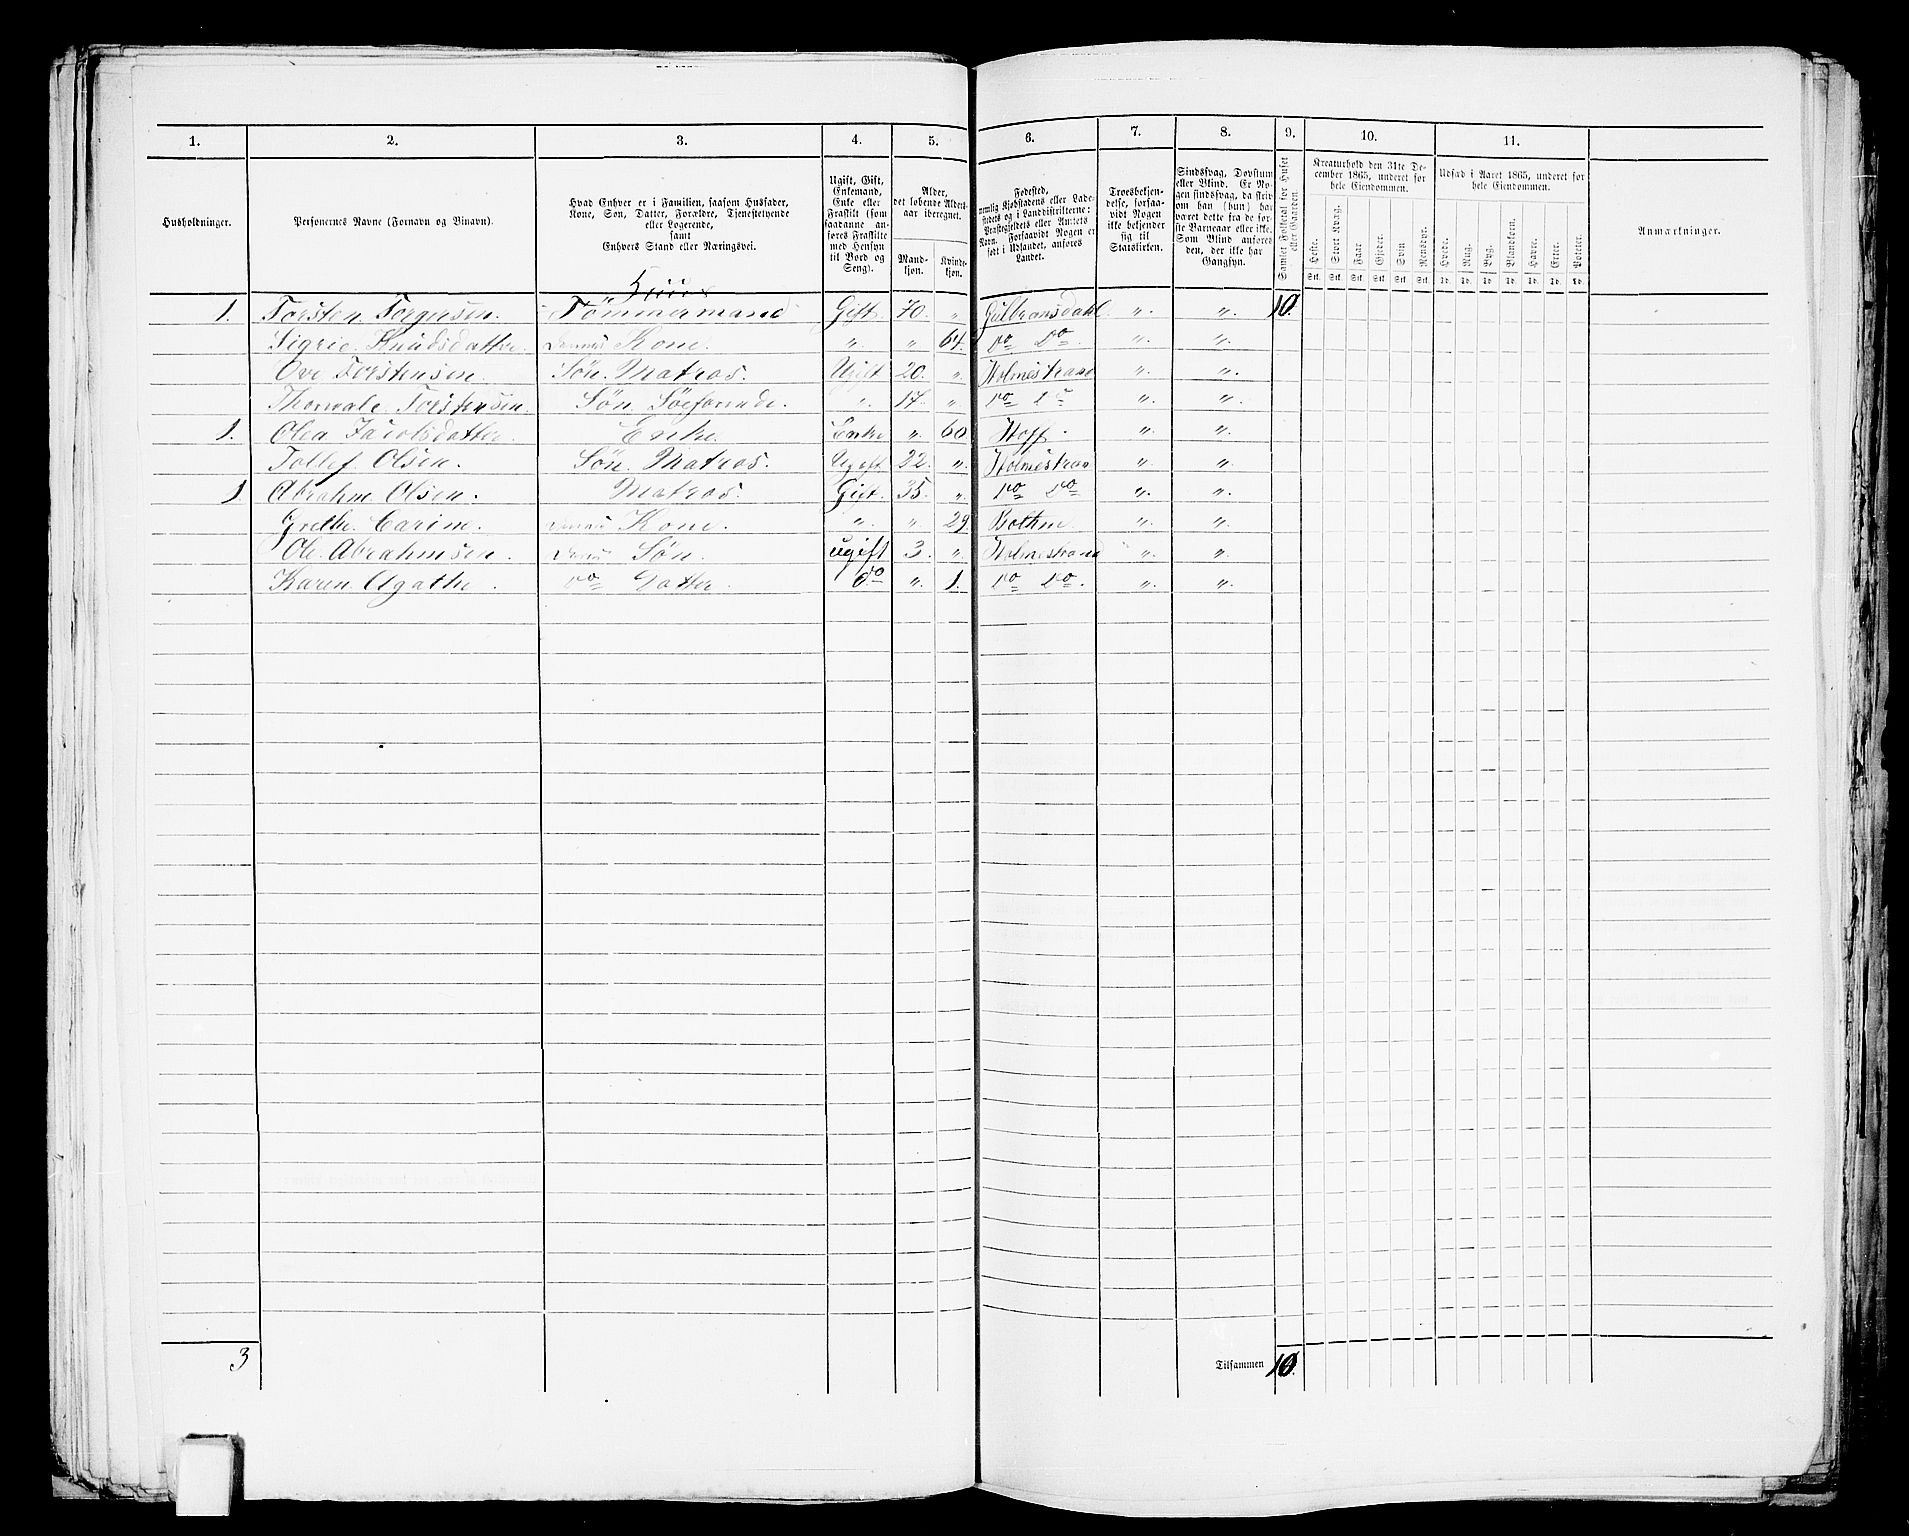 1. 2. 3. 4. 5. 6. 7. 8. 9. 10. 11.
Husholdninger.
Personernes Navne (Fornavn og Binavn).
Hvad Enhver er i Familien, saasom Husfader, Kone, Søn, Datter, Forældre, Tjenestetyende eller Logerende, samt Enhvers Stand eller Næringsvei.
Ugift, Gift, Enkemand, Enke eller Fraskilt (som saadanne anføres Fraskilte med Hensyn til Bord og Seng).
Alder, det løbende Aldersaar iberegnet.
Mandkjøn. Kvindekjøn.
Fødested, nemlig Kjøbstadens eller Ladestedets og i Landdistrikterne: Præstegjeldets eller Annexets Navn. Forsaavidt Nogen er født i Udlandet, anføres Landet.
Troesbekjendelse, forsaavidt Nogen ikke bekjender sig til Statskirken.
Sindssvag, Døvstum eller Blind. Er Nogen sindssvag, da skrives om han (hun) har været dette fra de første Barneaar eller ikke. Som Blind anføres den, der ikke har Gangsyn.
Samlet Folketal for Huset eller Gaarden.
Kreaturhold den 31te December 1865, underet for hele Eiendommen.
Heste. Stort Kvæg. Faar. Gjeder. Svin Rensdyr.
Stk. Stk. Stk. Stk. Stk. Stk.
Udsæd i Aaret 1865, underet for hele Eiendommen.
Hvede. Rug. Byg. Blandkorn. Havre. Erter. Poteter.
Td. Td. Td. Td. Td. Td. Td.
Anmærkninger.
1. Torsten Torgersen. Tömmermand Gift. 70. " Gulbransdahl. ". ". 10.
Sigrid Knudsdatter Dennes Kone. ". " 64. Do Do. ". ".
Ove Torstensen. Søn. Matros. Ugift 20. ". Holmestrand ". ".
Thorvald Torstensen. Søn Söefarende. ". 17. ". Do Do ". ".
1. Olea Jacobsdatter. Enke. Enke ". 60. Hoff. ". ".
Tollef Olsen. Søn. Matros. Ugift 22. ". Holmestran ". ".
1. Abrahm Olsen. Matros. Gift. 35. ". Do Do ". ".
Grethe Carine. Dennes Kone. ". ". 29. Bothne. ". ".
Ole Abrahmsen. Dennes Søn. ugift 3. ". Holmestrand ". ".
Karen Agathe. Do Datter. do ". 1. Do Do. ". ".
3 Tilsammen 10.